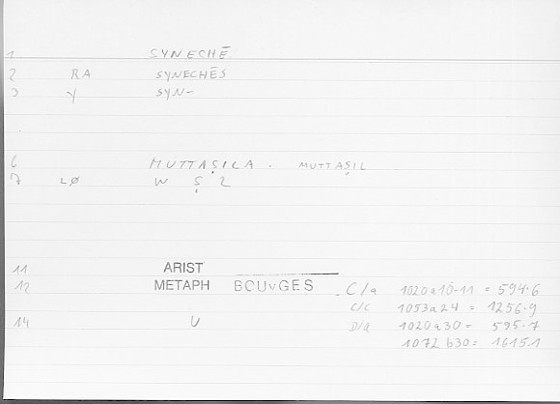 1 SYNECHĒ
2 RA SYNECHĒS
3 Y SYN-
6 MUTTAṢILA - MUTTAṢIL
7 LØ W Ṣ L
11 ARIST
12 METAPH BOUYGES C/a 1020a10-11 = 594.6
C/C 1053a24 = 1256.9
D/a 1020a30 = 595.7
14 U
1072b30 = 1615.1